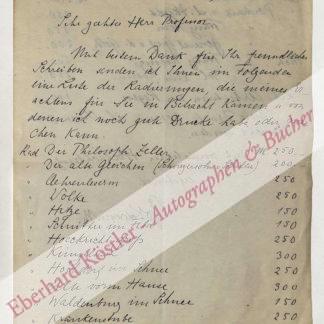 Sehr geehrter Herr Professor
Mit bestem Dank für Ihr freundliches
Schreiben sende ich Ihnen im Folgenden
eine Liste der Radierungen, die meines
achtens für Sie in Betracht kämen u. von
denen ich noch gute Drucke habe oder
chen kann.
Rad Der Philosoph Zeller 250.-
" Der alte Gleichen 200.-
" Aehrenlesen 250
" Wolke 250
" Hitze 150
" Schnitter im 150
" 250
" 300
" im Schnee 250
" vorm Hause 300
" Waldenburg im Schnee 150
" Krankenstube 250
Eberhard Köstler - Autographen & Bücher